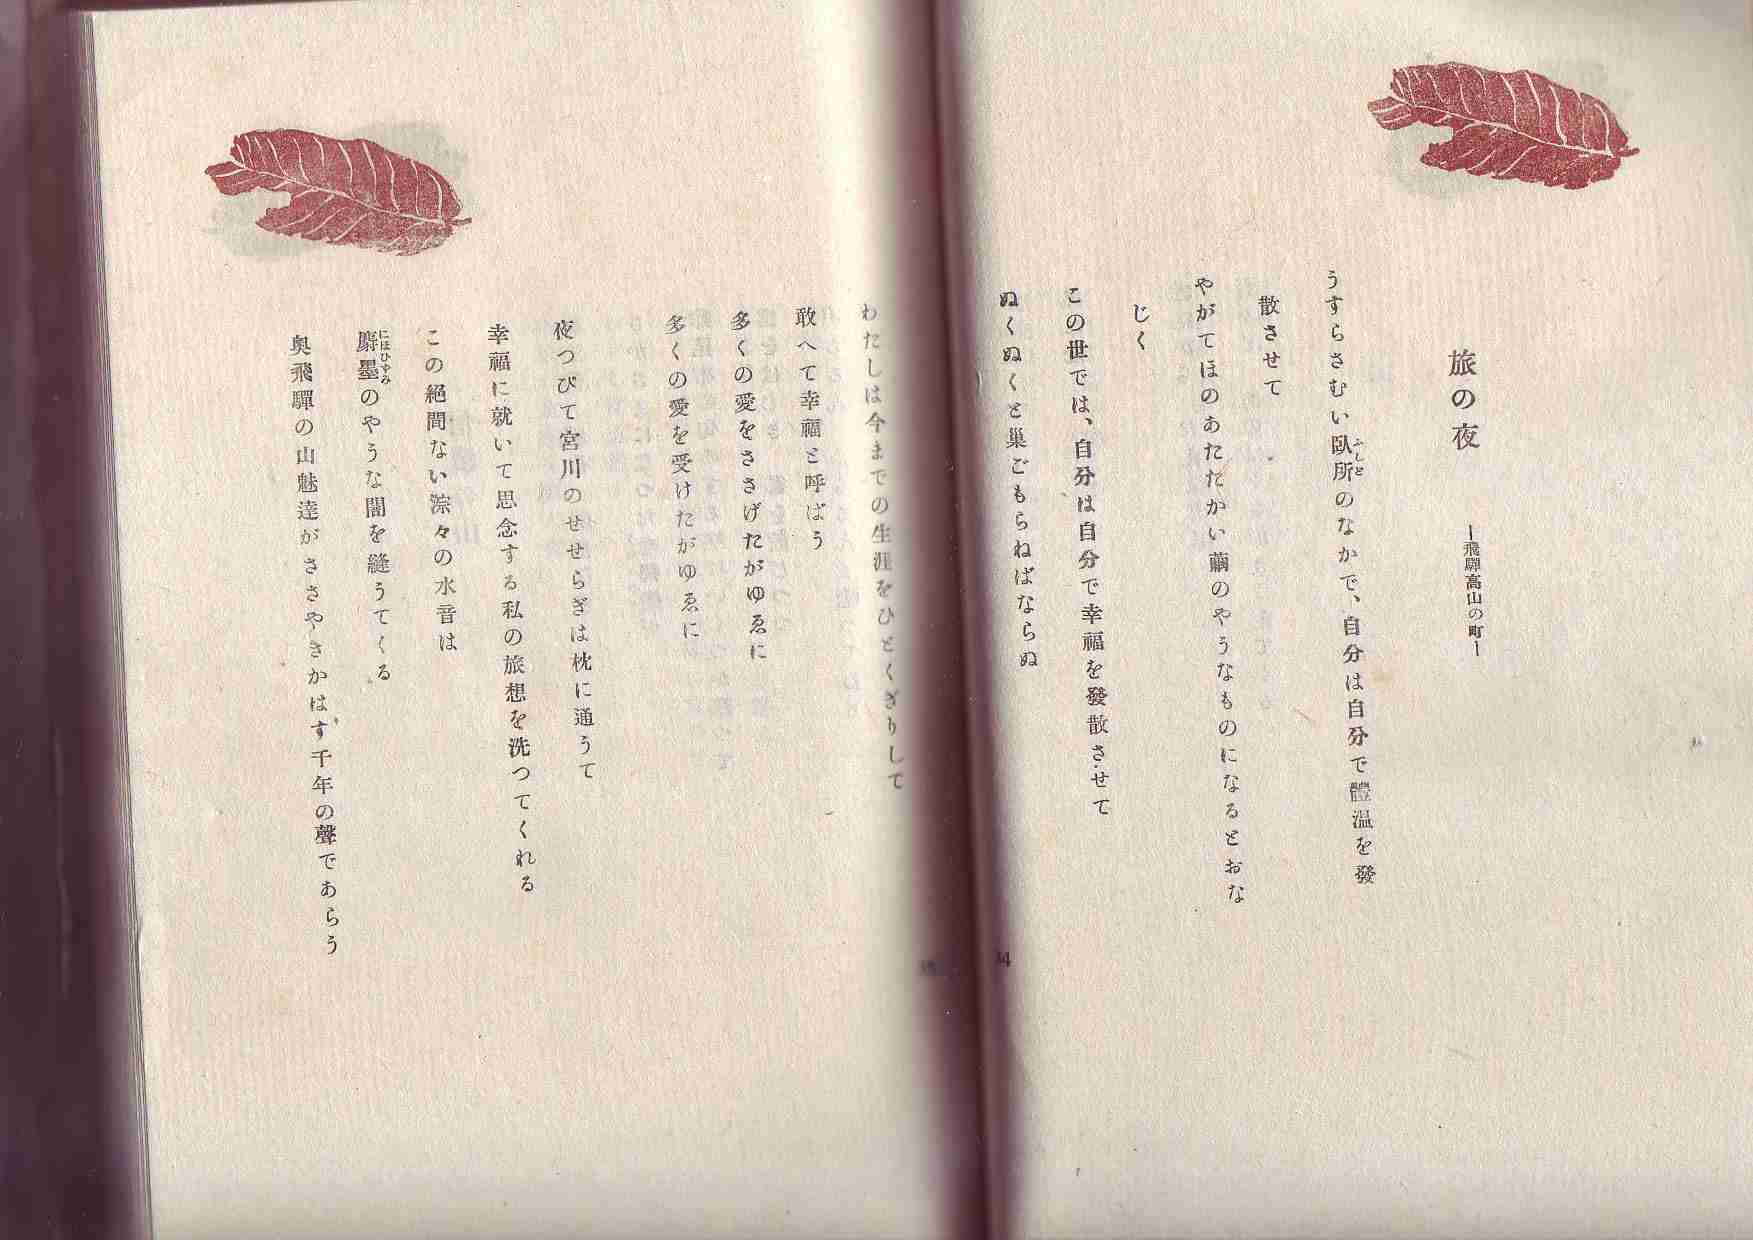 旅の夜
―飛驒高山の町―
うすらさむい臥所のなかで、自分は自分で體温を發
ふしど
散させて
やがてほのあたたかい繭のやうなものになるとおな
じく
この世では、自分は自分で幸福を發散させて
ぬくぬくと巢ごもらねばならぬ
わたしは今までの生涯をひとくぎりして
敢へて幸福と呼ばう
多くの愛をささげたがゆゑに
多くの愛を受けたがゆゑに
夜つぴて宮川のせせらぎは枕に通うて
幸福に就いて思念する私の旅想を洗つてくれる
この絶間ない淙々の水音は
麝墨のやうな闇を縫うてくる
にほひずみ
奥飛驒の山魅達がささやきかはす千年の聲であらう